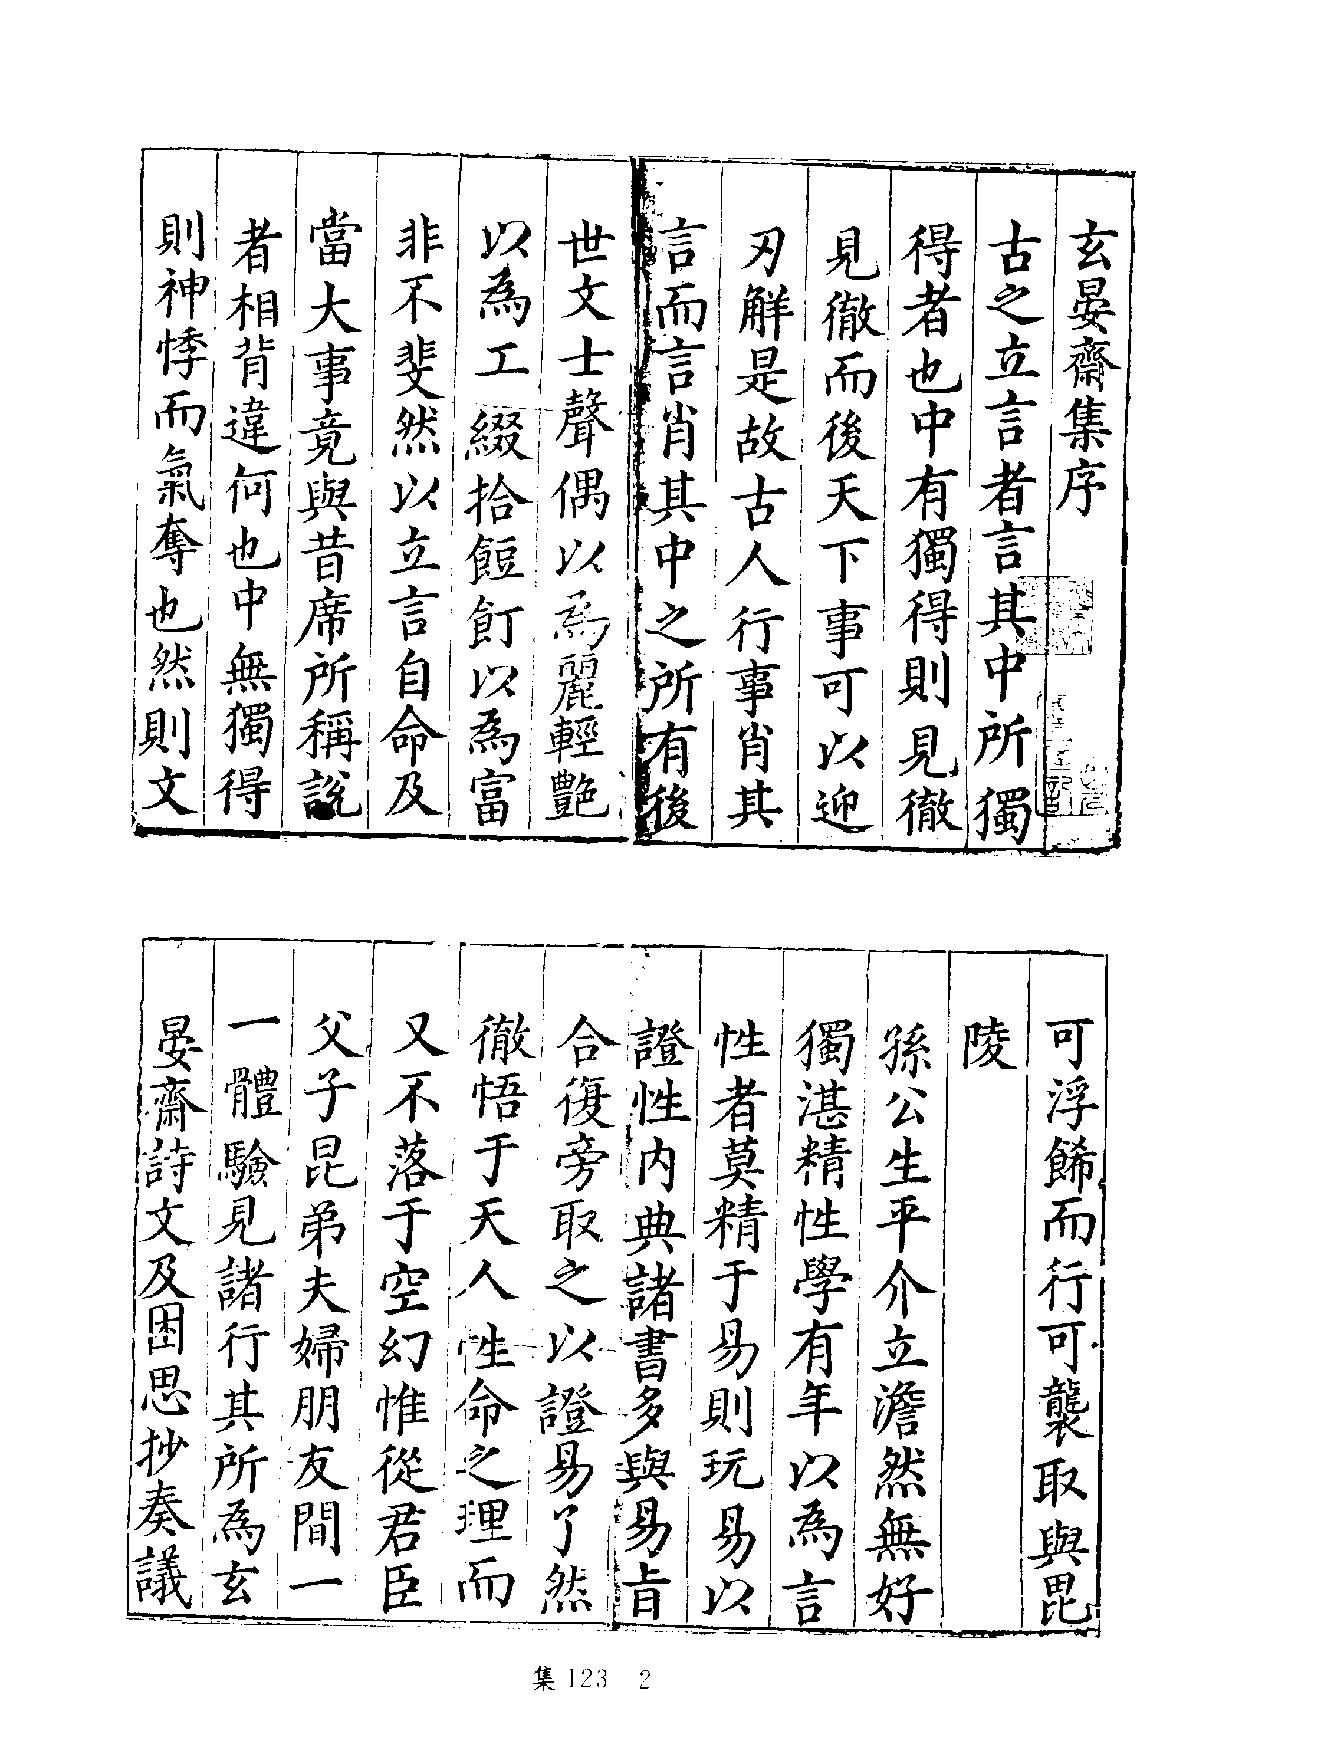 玄晏齋集序
古之立言者言其中所獨
得者也中有獨得則見徹
見徹而後天下事可以迎
刃解是故古人行事肖其
言而言肖其中之所有後
世文士聲偶以為麗輕艷
以為工綴拾餖飣以為富
非不斐然以立言自命及
當大事竟與昔席所稱說
者相背違何也中無獨得
則神悸而氣奪也然則文
可浮餙而行可襲取與毘
陵
孫公生平介立澹然無好
獨湛精性學有年以為言
性者莫精于易則玩易以
證性内典諸書多與易旨
合復旁取之以證易了然
徹悟于天人性命之理而
又不落于空幻惟從君臣
父子昆弟夫婦朋友間一
一體驗見諸行其所為玄
晏齋詩文及困思抄奏議
集123 2